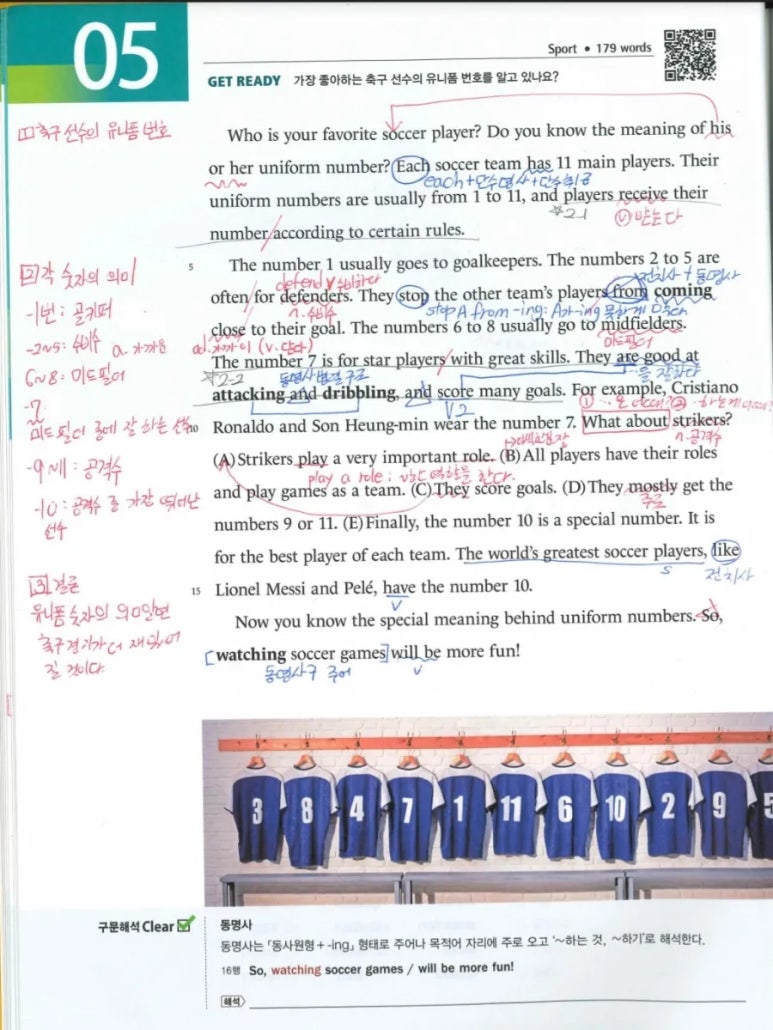 05
Sport • 179 words
GET READY 가장 좋아하는 축구 선수의 유니폼 번호를 알고 있나요?
1 축구 선수의 유니폼 번호
Who is your favorite soccer player? Do you know the meaning of his
or her uniform number? Each soccer team has 11 main players. Their
each+단수명사+단수취급
uniform numbers are usually from 1 to 11, and players receive their
☆2-1
ⓥ 받는다
number according to certain rules.
2 각 숫자의 의미
-1번 : 골키퍼
-2~5 : 수비수
6~8 : 미드필더
-7
미드필더 중에 잘 하는 선수
-10 : 공격수 중 가장 뛰어난
선수
5
The number 1 usually goes to goalkeepers. The numbers 2 to 5 are
defend v 수비하다
전치사 + 동명사
often for defenders. They stop the other team's players from coming
n. 수비수
stop A from -ing: A가 -ing 못하게 막다
close to their goal. The numbers 6 to 8 usually go to midfielders.
a. 가까운
ad. 가까이 (v. 닫다)
미드필더
The number 7 is for star players with great skills. They are good at
☆2-2
동명사 병렬구조
을 잘한다
attacking and dribbling, and score many goals. For example, Cristiano
V2
10
Ronaldo and Son Heung-min wear the number 7. What about strikers?
n. 공격수
(A) Strikers play a very important role. (B) All players have their roles
play a role : 역할을 한다.
and play games as a team. (C) They score goals. (D) They mostly get the
주로
numbers 9 or 11. (E) Finally, the number 10 is a special number. It is
for the best player of each team. The world's greatest soccer players, like
s
전치사
15
Lionel Messi and Pelé, have the number 10.
v
3 결론
유니폼 숫자의 의미 알면
축구 경기가 더 재밌어
질 것이다.
Now you know the special meaning behind uniform numbers. So,
[watching soccer games] will be more fun!
동명사구 주어
v
3 8 4 7 1 11 6 10 2 9 5
구문해석 Clear
동명사
동명사는 「동사원형 + -ing」 형태로 주어나 목적어 자리에 주로 오고 '~하는 것, ~하기'로 해석한다.
16행 So, watching soccer games / will be more fun!
해석